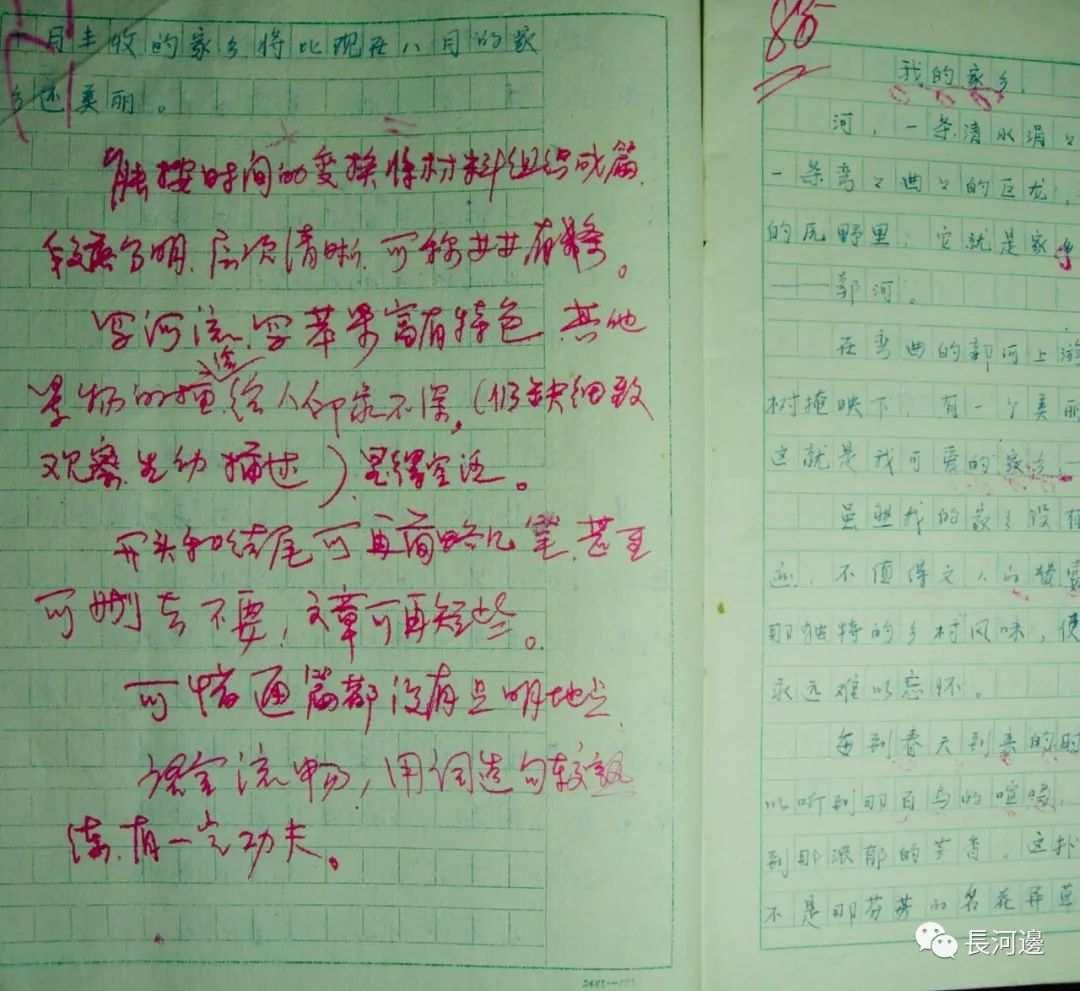 十月丰收的家乡将比现在八月的家
乡还美丽。
能按时间的变换将材料组织成篇,
较为分明,层次清晰,可称井井有条。
写河流、写苹果富有特色,其他
景物的描绘给人印象不深,(仍缺细致
观察,生动描述)显得空泛。
开头和结尾可再简略几笔,甚至
可删去不要,文章可再短些。
可惜通篇都没有点明地点,
语言流畅,用词造句较熟
练,有一定功夫。
85
我的家乡
河,一条清水涓々
一条弯々曲々的巨龙,
的原野里,它就是家乡
——郭河。
在弯曲的郭河上游
树掩映下,有一个美丽
这就是我可爱的家乡,
虽然我的家乡没有
不值得文人的
那独特的乡村风味,使
永远难以忘怀。
每到春天到来的时
以听到那百鸟的喧嚷,
到那浓郁的芳香。这扑
不是那芬芳的名花异草
長河邊